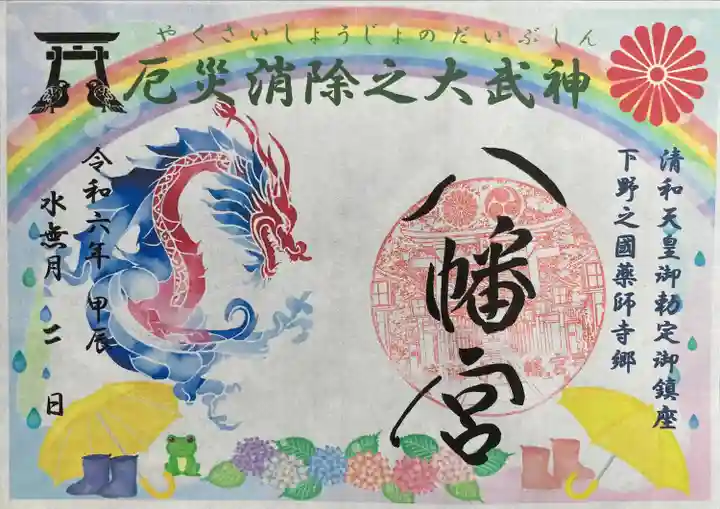 やくさいしょうじょのだいぶしん
厄災消除之大武神
清和天皇御勅定御鎮座
下野之國薬師寺郷
八幡宮
八幡宮
令和六年 甲辰
水無月 二 日